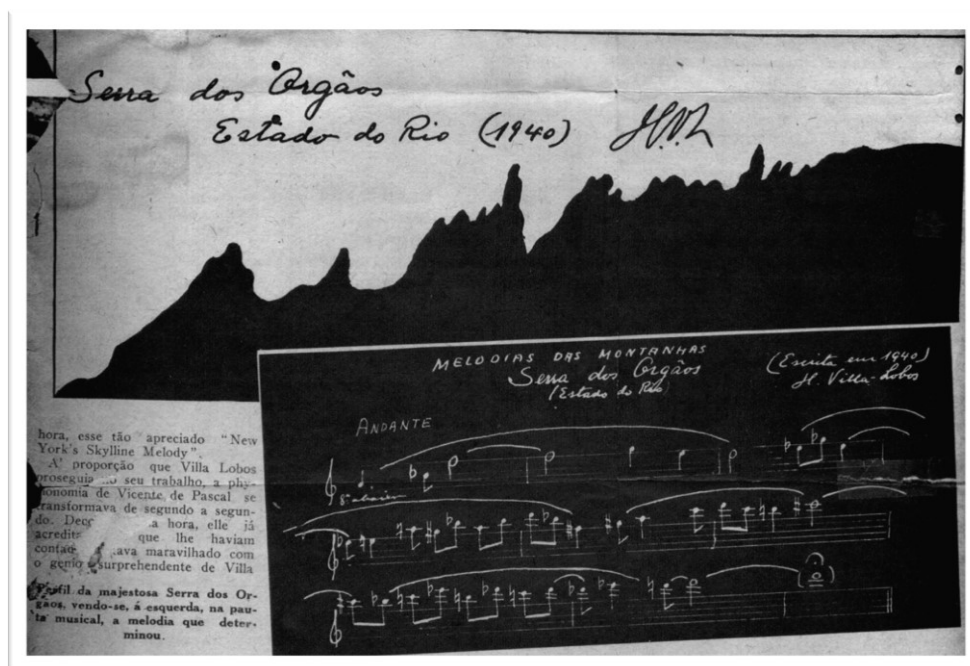 Serra dos Orgãos
Estado do Rio (1940) H.V.L
MELODIAS DAS MONTANHAS
Serra dos Orgãos
(Estado do Rio)
(Escrita em 1940)
H. Villa-Lobos
ANDANTE
8ª abaixo
hora, esse tão apreciado "New
York's Skylline Melody".
A' proporção que Villa Lobos
proseguia no seu trabalho, a phy-
sionomia de Vicente de Pascal se
transformava de segundo a segun-
do. a hora, elle já
que lhe haviam
maravilhado com
o genio surprehendente de Villa
Perfil da majestosa Serra dos Or-
gãos, vendo-se, á esquerda, na pau-
ta musical, a melodia que deter-
minou.